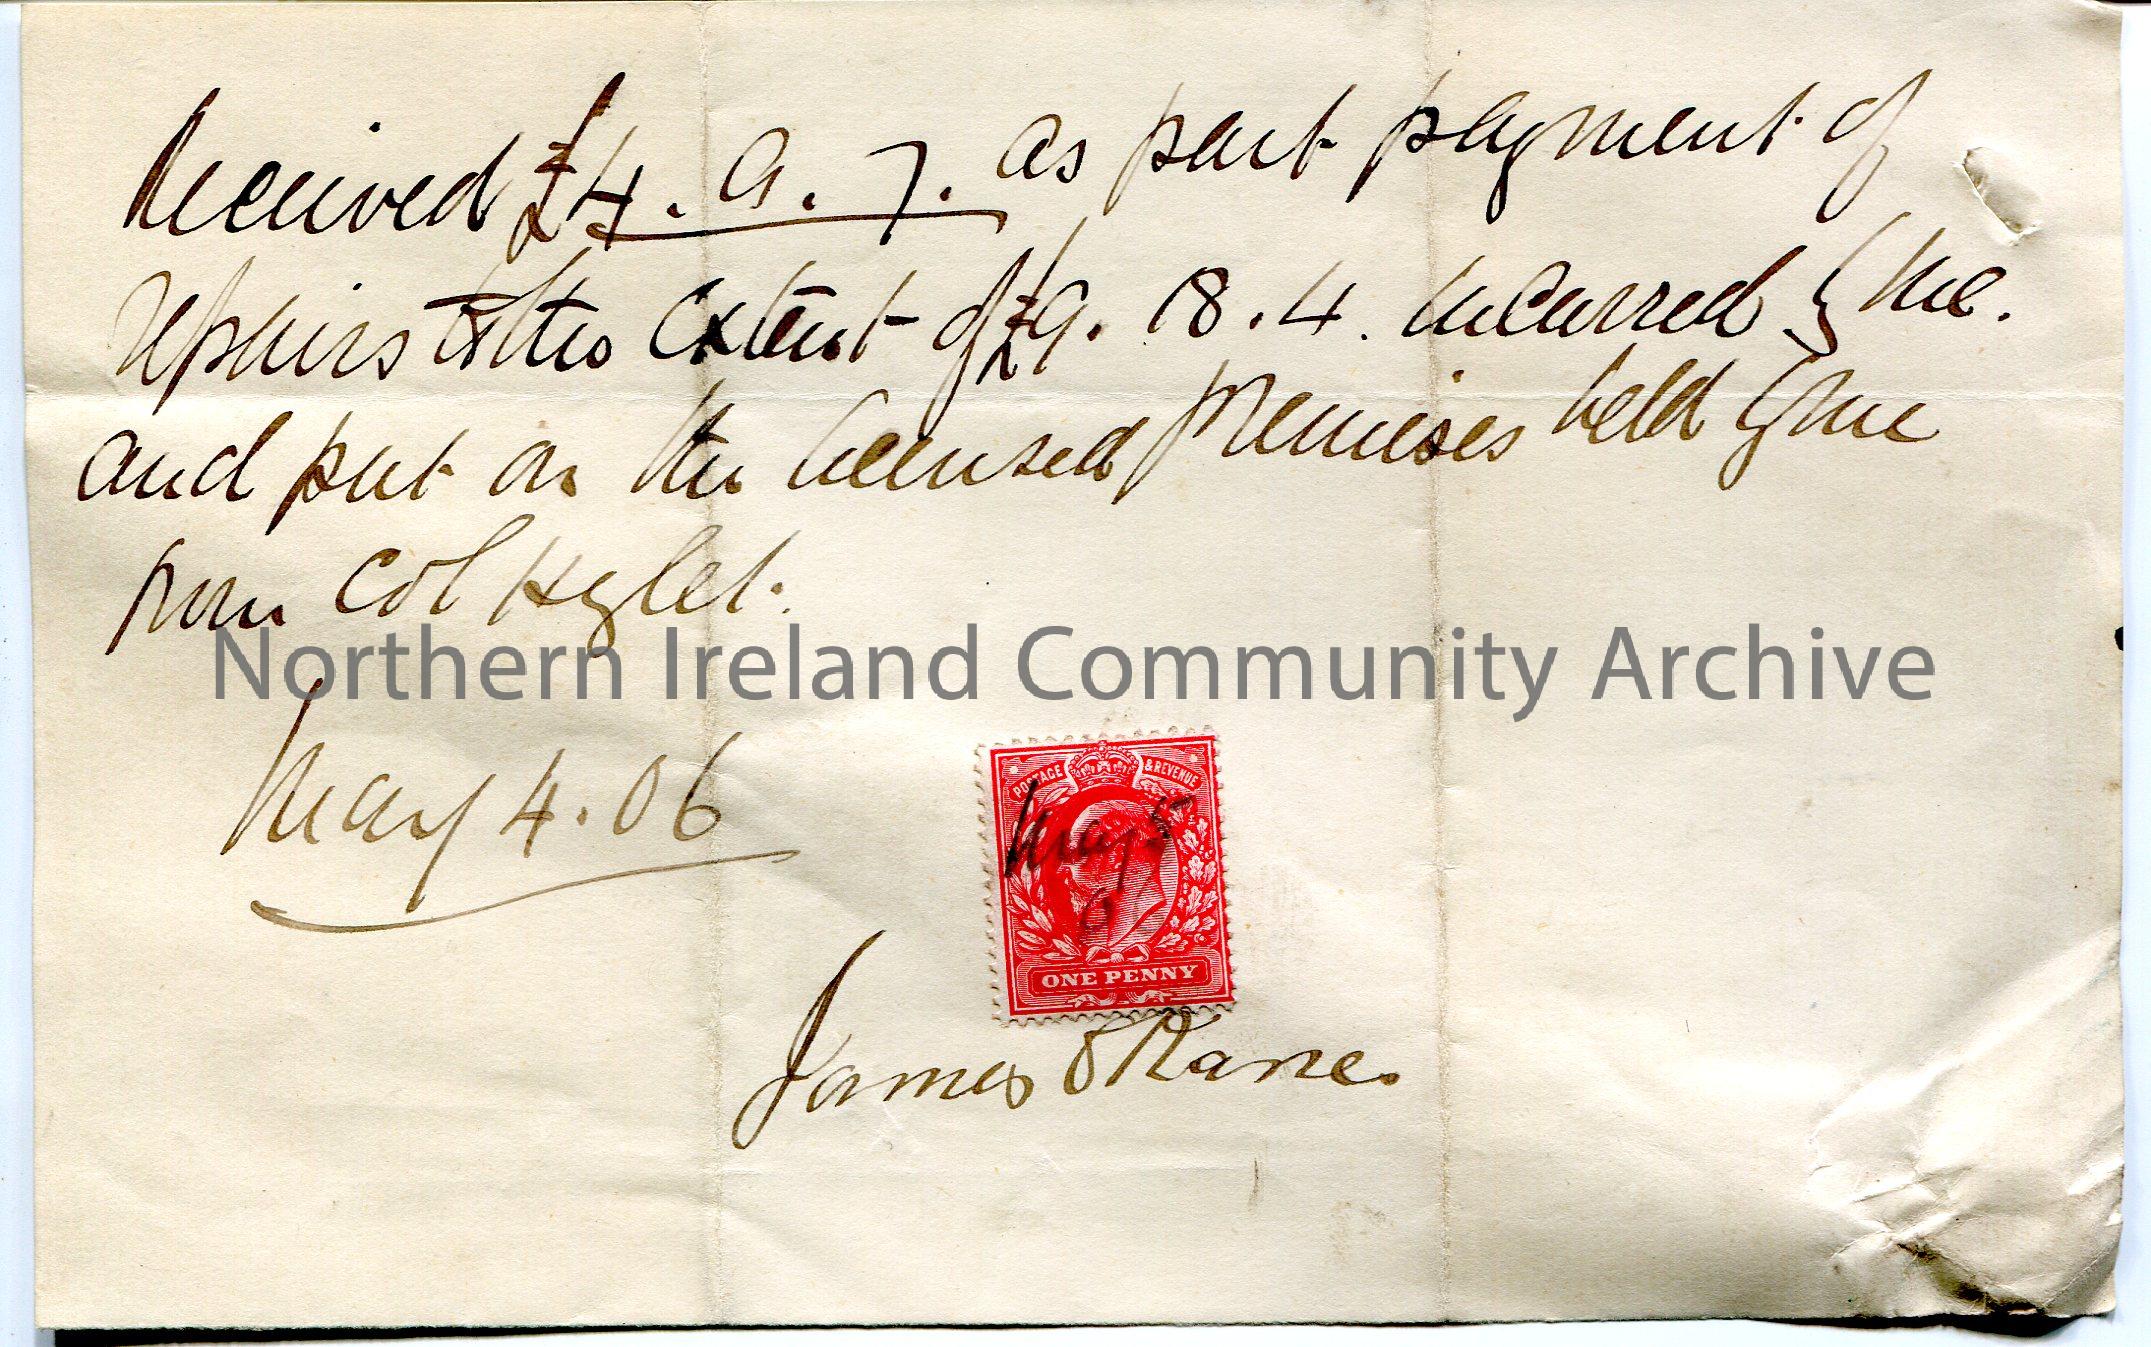 Received £4. 9. 7. as part payment of
repairs to the extent of £9. 18. 4. incurred by me.
and put on the licensed premises held by me
from Col Hyslet.
Northern Ireland Community Archive
May 4. 06
POSTAGE & REVENUE
May 5
ONE PENNY
James O'Kane.